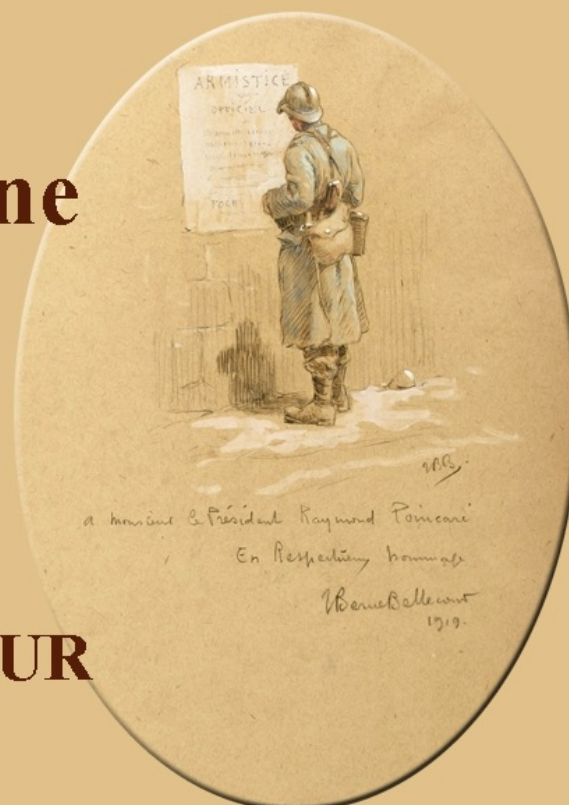 ARMISTICE
OFFICIEL
FOCH
ne
a monsieur le Président Raymond Poincaré
En Respectueux hommage
1919.
UR